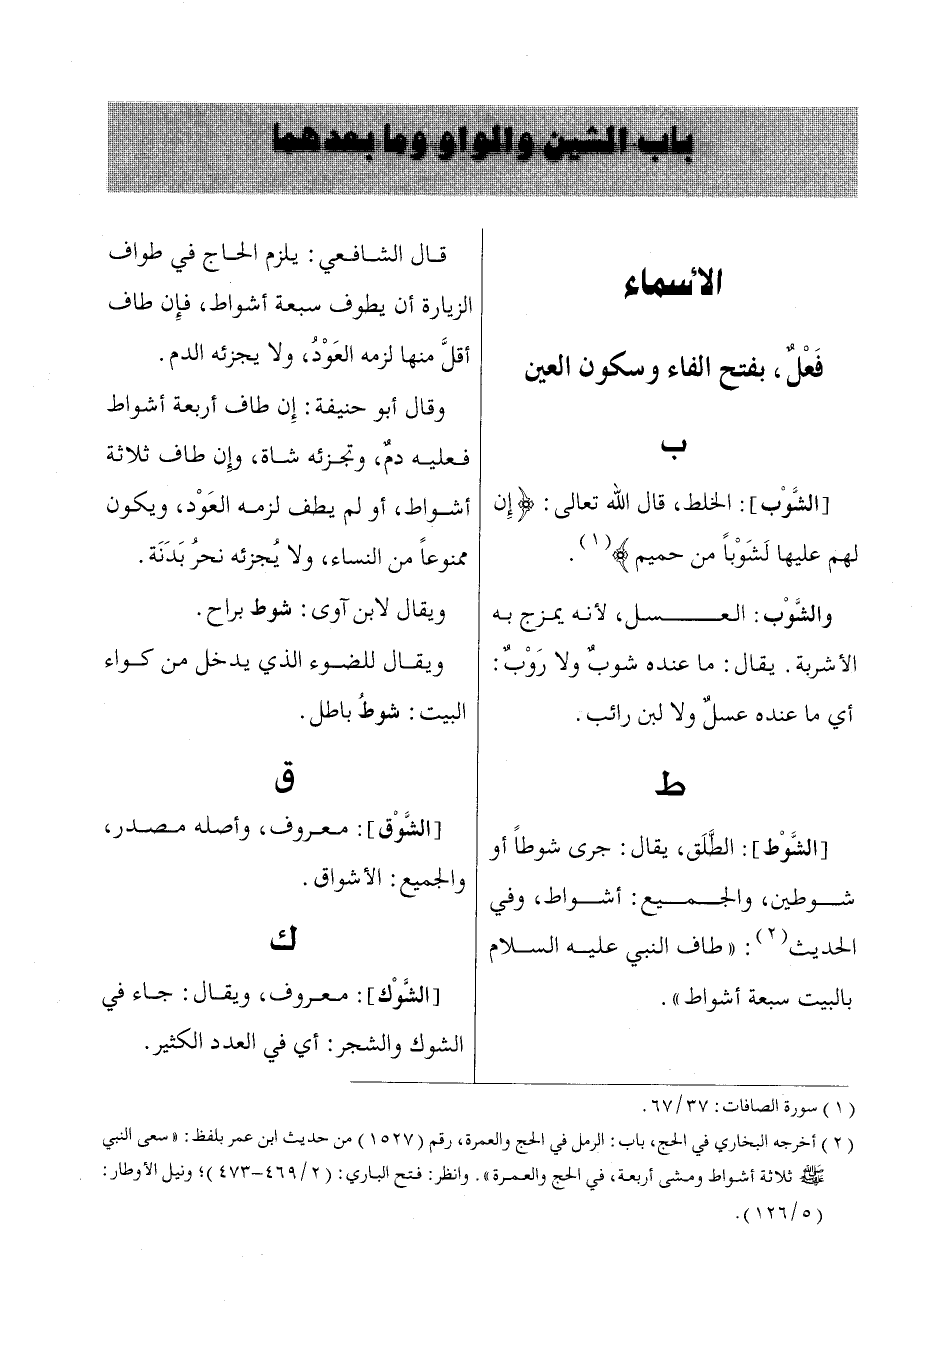 باب الشين والواو وما بعدهما
الأسماء
فَعْلٌ، بفتح الفاء وسكون العين
ب
[الشَّوْب]: الخلط، قال الله تعالى: ﴿إن
لهم عليها لَشَوْباً من حميم﴾(١).
والشَّوْب: العـــــسل، لأنه يمزج به
الأشربة. يقال: ما عنده شوبٌ ولا رَوْبٌ:
أي ما عنده عسلٌ ولا لبن رائب.
ط
[الشَّوْط]: الطَّلَق، يقال: جرى شوطاً أو
شوطين، والجميع: أشواط، وفي
الحديث(٢): «طاف النبي عليه السلام
بالبيت سبعة أشواط».
قال الشافعي: يلزم الحاج في طواف
الزيارة أن يطوف سبعة أشواط، فإن طاف
أقلَّ منها لزمه العَوْدُ، ولا يجزئه الدم.
وقال أبو حنيفة: إن طاف أربعة أشواط
فعليه دمٌ، وتجزئه شاة، وإن طاف ثلاثة
أشواط، أو لم يطف لزمه العَوْد، ويكون
ممنوعاً من النساء، ولا يُجزئه نحرُ بَدَنَة.
ويقال لابن آوى: شوط براح.
ويقال للضوء الذي يدخل من كواء
البيت: شوطُ باطل.
ق
[الشَّوْق]: معروف، وأصله مصدر،
والجميع: الأشواق.
ك
[الشَّوْك]: معروف، ويقال: جاء في
الشوك والشجر: أي في العدد الكثير.
(١) سورة الصافات: ٣٧/ ٦٧.
(٢) أخرجه البخاري في الحج، باب: الرمل في الحج والعمرة، رقم (١٥٢٧) من حديث ابن عمر بلفظ: «سعى النبي
ﷺ ثلاثة أشواط ومشى أربعة، في الحج والعمرة». وانظر: فتح الباري: (٢/ ٤٦٩-٤٧٣)؛ ونيل الأوطار:
(٥/ ١٢٦).